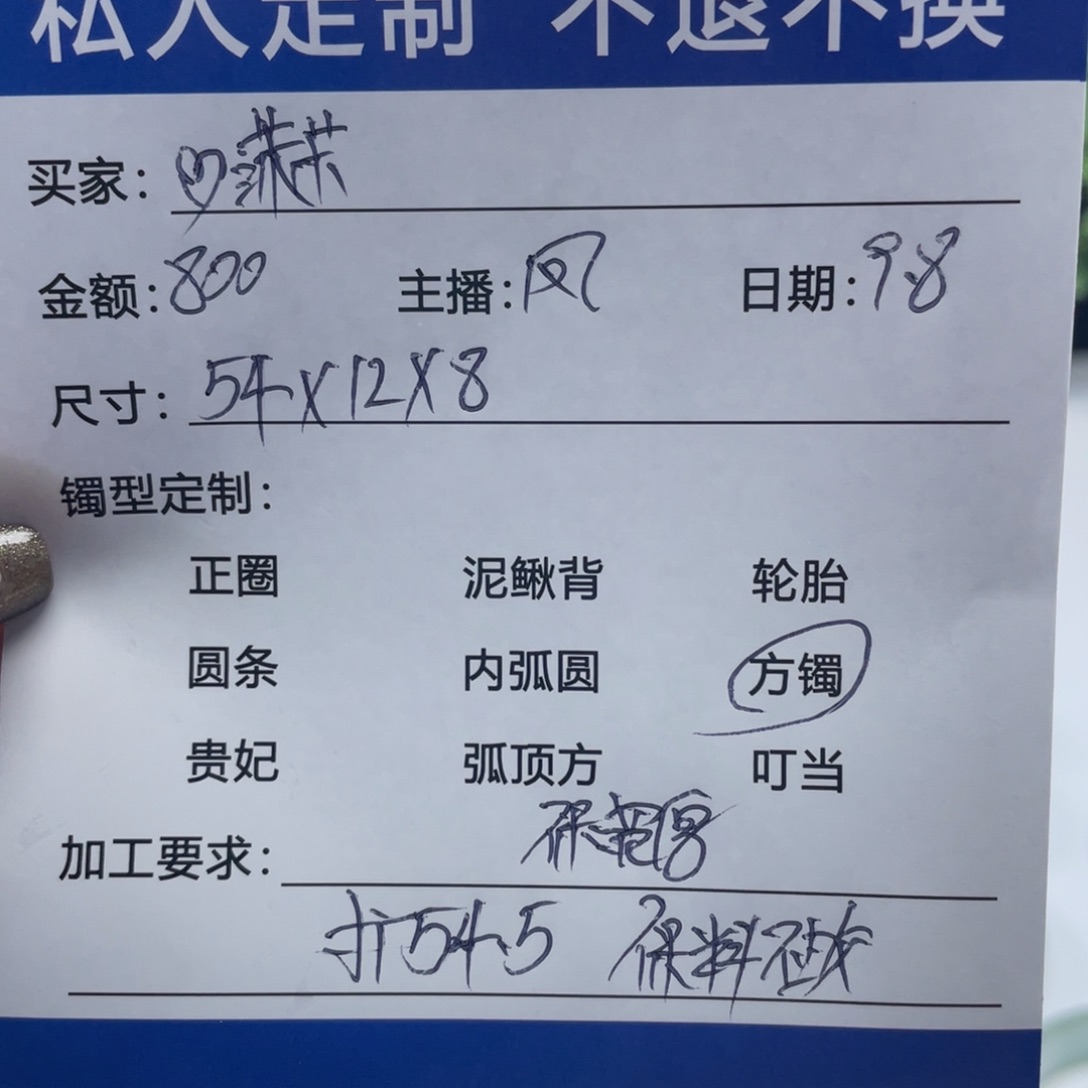 私人定制 不退不换
买家：
金额：800 主播：风 日期：9.8
尺寸：54X12X8
镯型定制：
正圈 泥鳅背 轮胎
圆条 内弧圆 方镯
贵妃 弧顶方 叮当
加工要求：保
扩54.5 保料不改